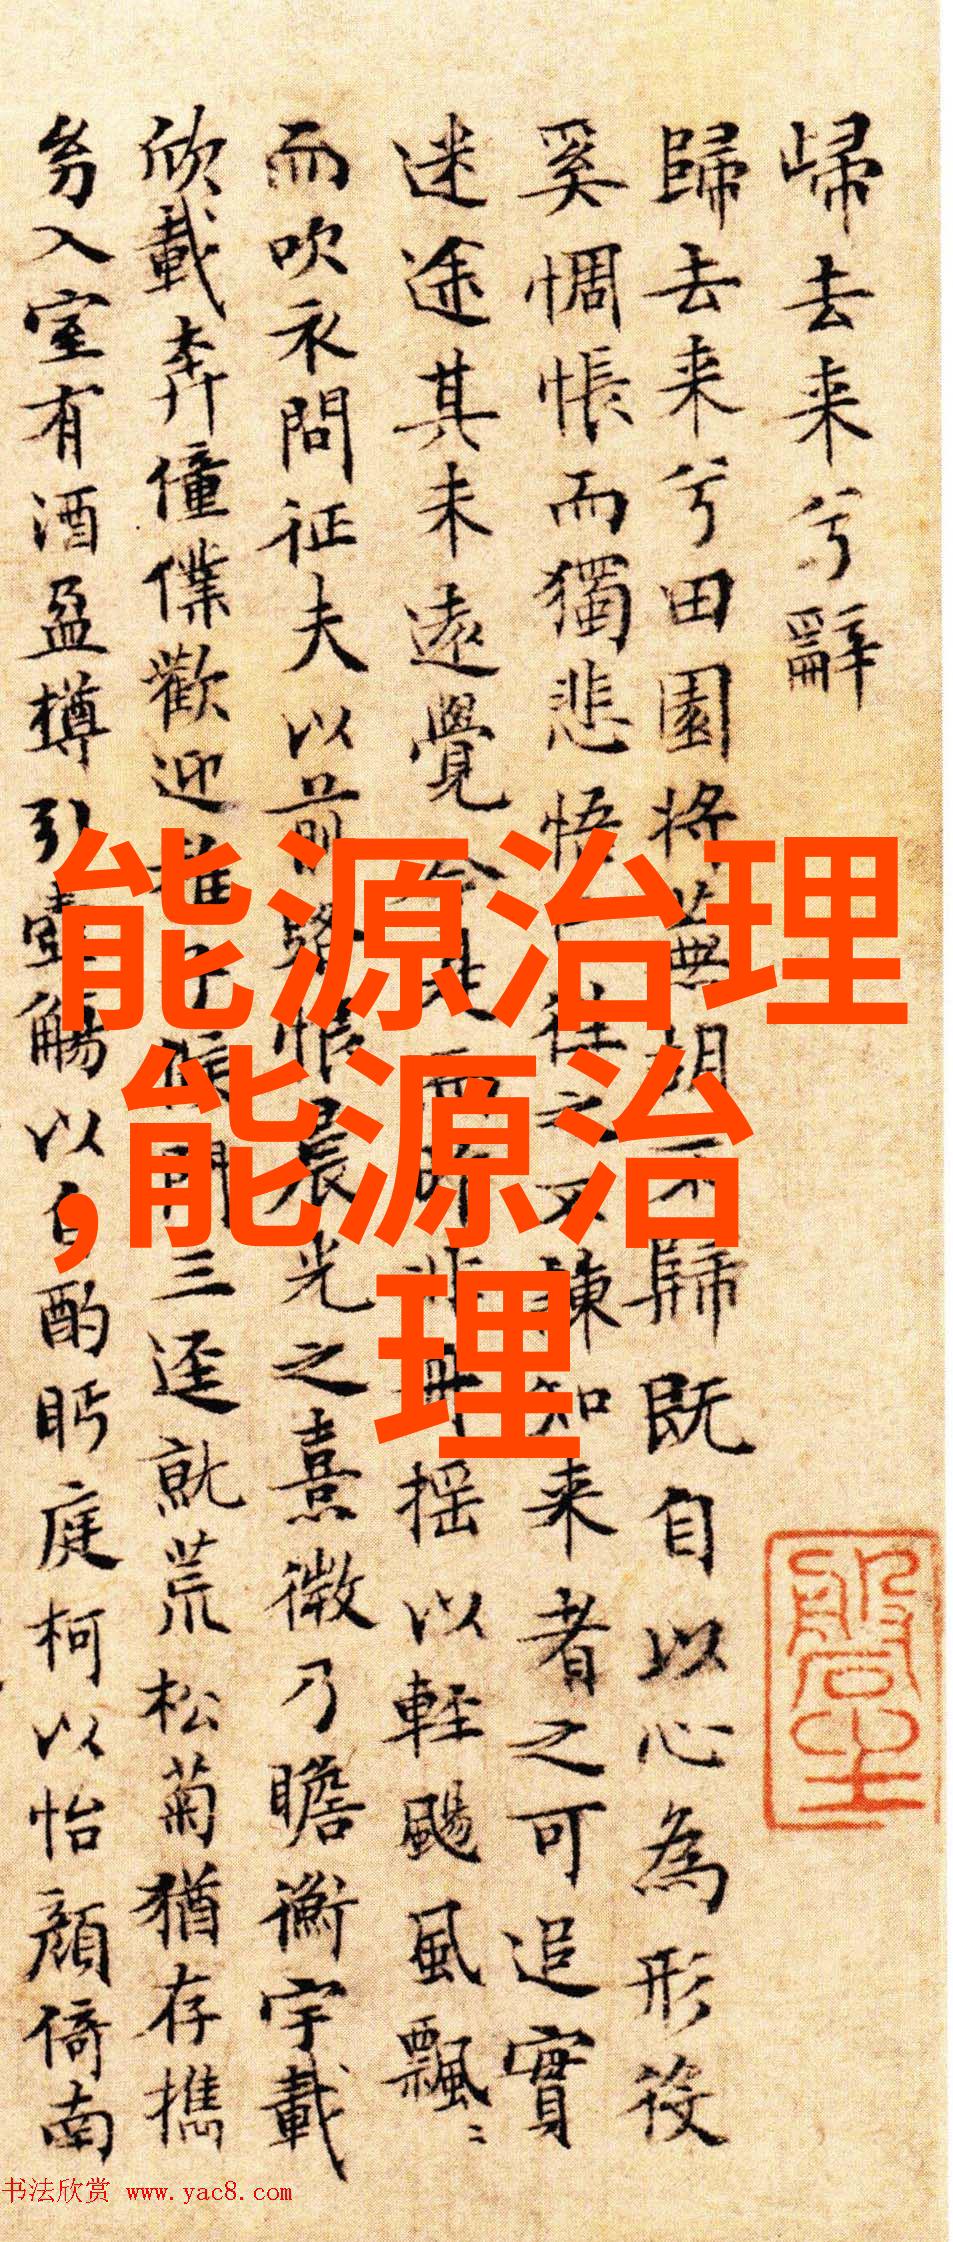 歸去来兮辭
歸去来兮田園将蕪胡不歸既自以心為形役
奚惆悵而獨悲悟已往之不諫知来者之可追實
迷途其未遠覺今是而昨非舟揺以軽颺風飄〻
而吹衣問征夫以前路恨晨光之熹微乃瞻衡宇載
欣載奔僮僕歡迎稚子候門三逕就荒松菊猶存攜
㓜入室有酒盈樽引壺觴以自酌眄庭柯以怡顔倚南
能源治理
,能源治
理
书法欣赏 www.yac8.com